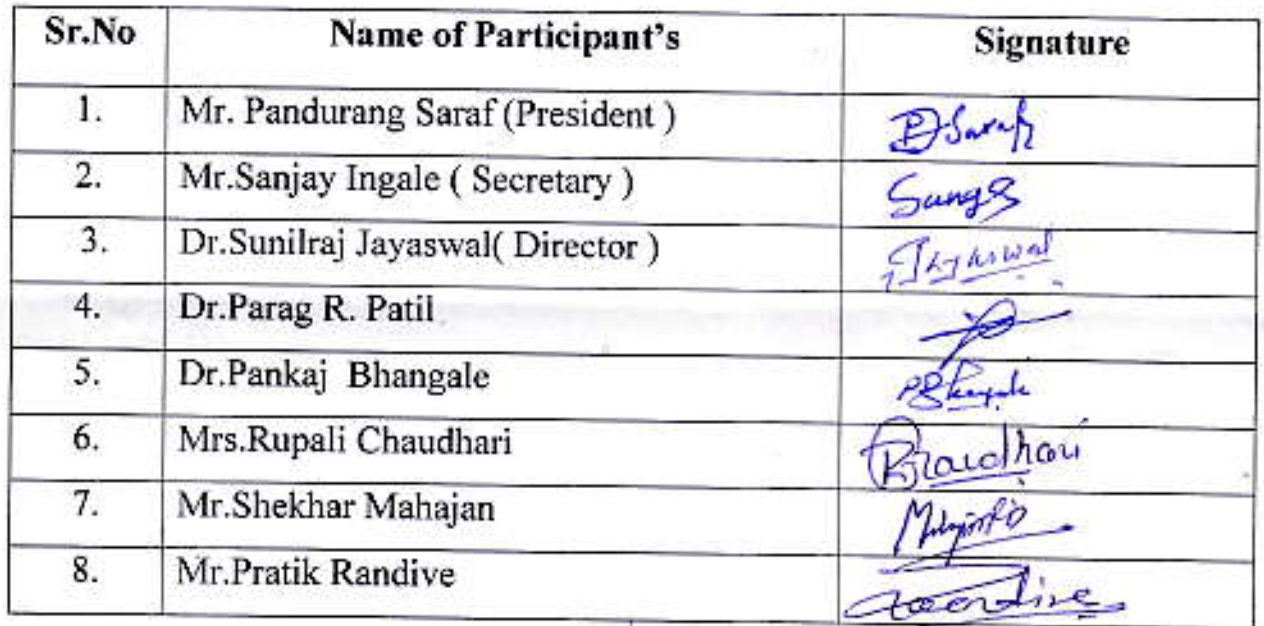 Sr.No Name of Participant's Signature
1. Mr. Pandurang Saraf (President ) PSaraf
2. Mr.Sanjay Ingale ( Secretary )
3. Dr.Sunilraj Jayaswal( Director ) Jayaswal
4. Dr.Parag R. Patil
5. Dr.Pankaj Bhangale
6. Mrs.Rupali Chaudhari RChaudhari
7. Mr.Shekhar Mahajan
8. Mr.Pratik Randive Randive